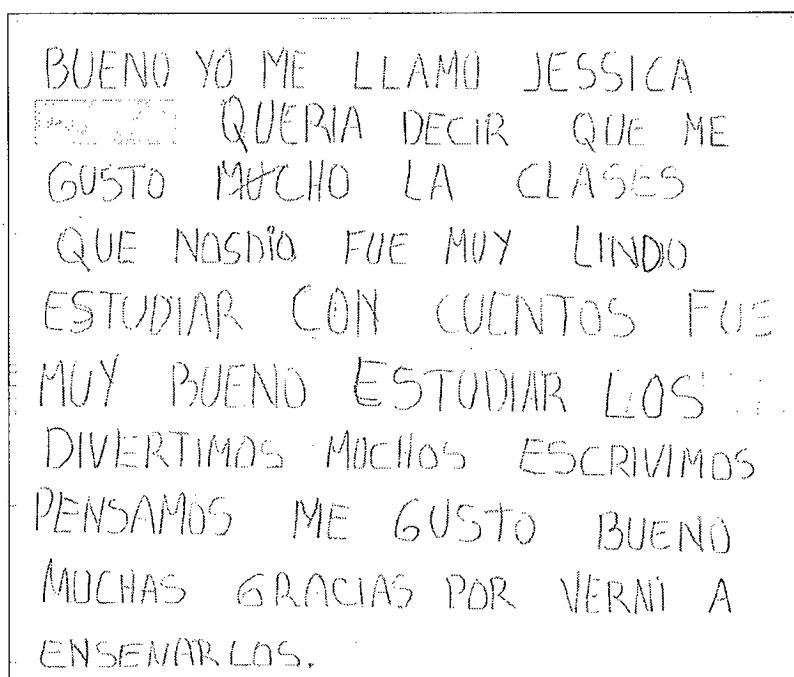 BUENO YO ME LLAMO JESSICA
QUERIA DECIR QUE ME
GUSTO MUCHO LA CLASES
QUE NOSDIO FUE MUY LINDO
ESTUDIAR CON CUENTOS FUE
MUY BUENO ESTUDIAR LOS
DIVERTIMOS MUCHOS ESCRIVIMOS
PENSAMOS ME GUSTO BUENO
MUCHAS GRACIAS POR VERNI A
ENSENARLOS.